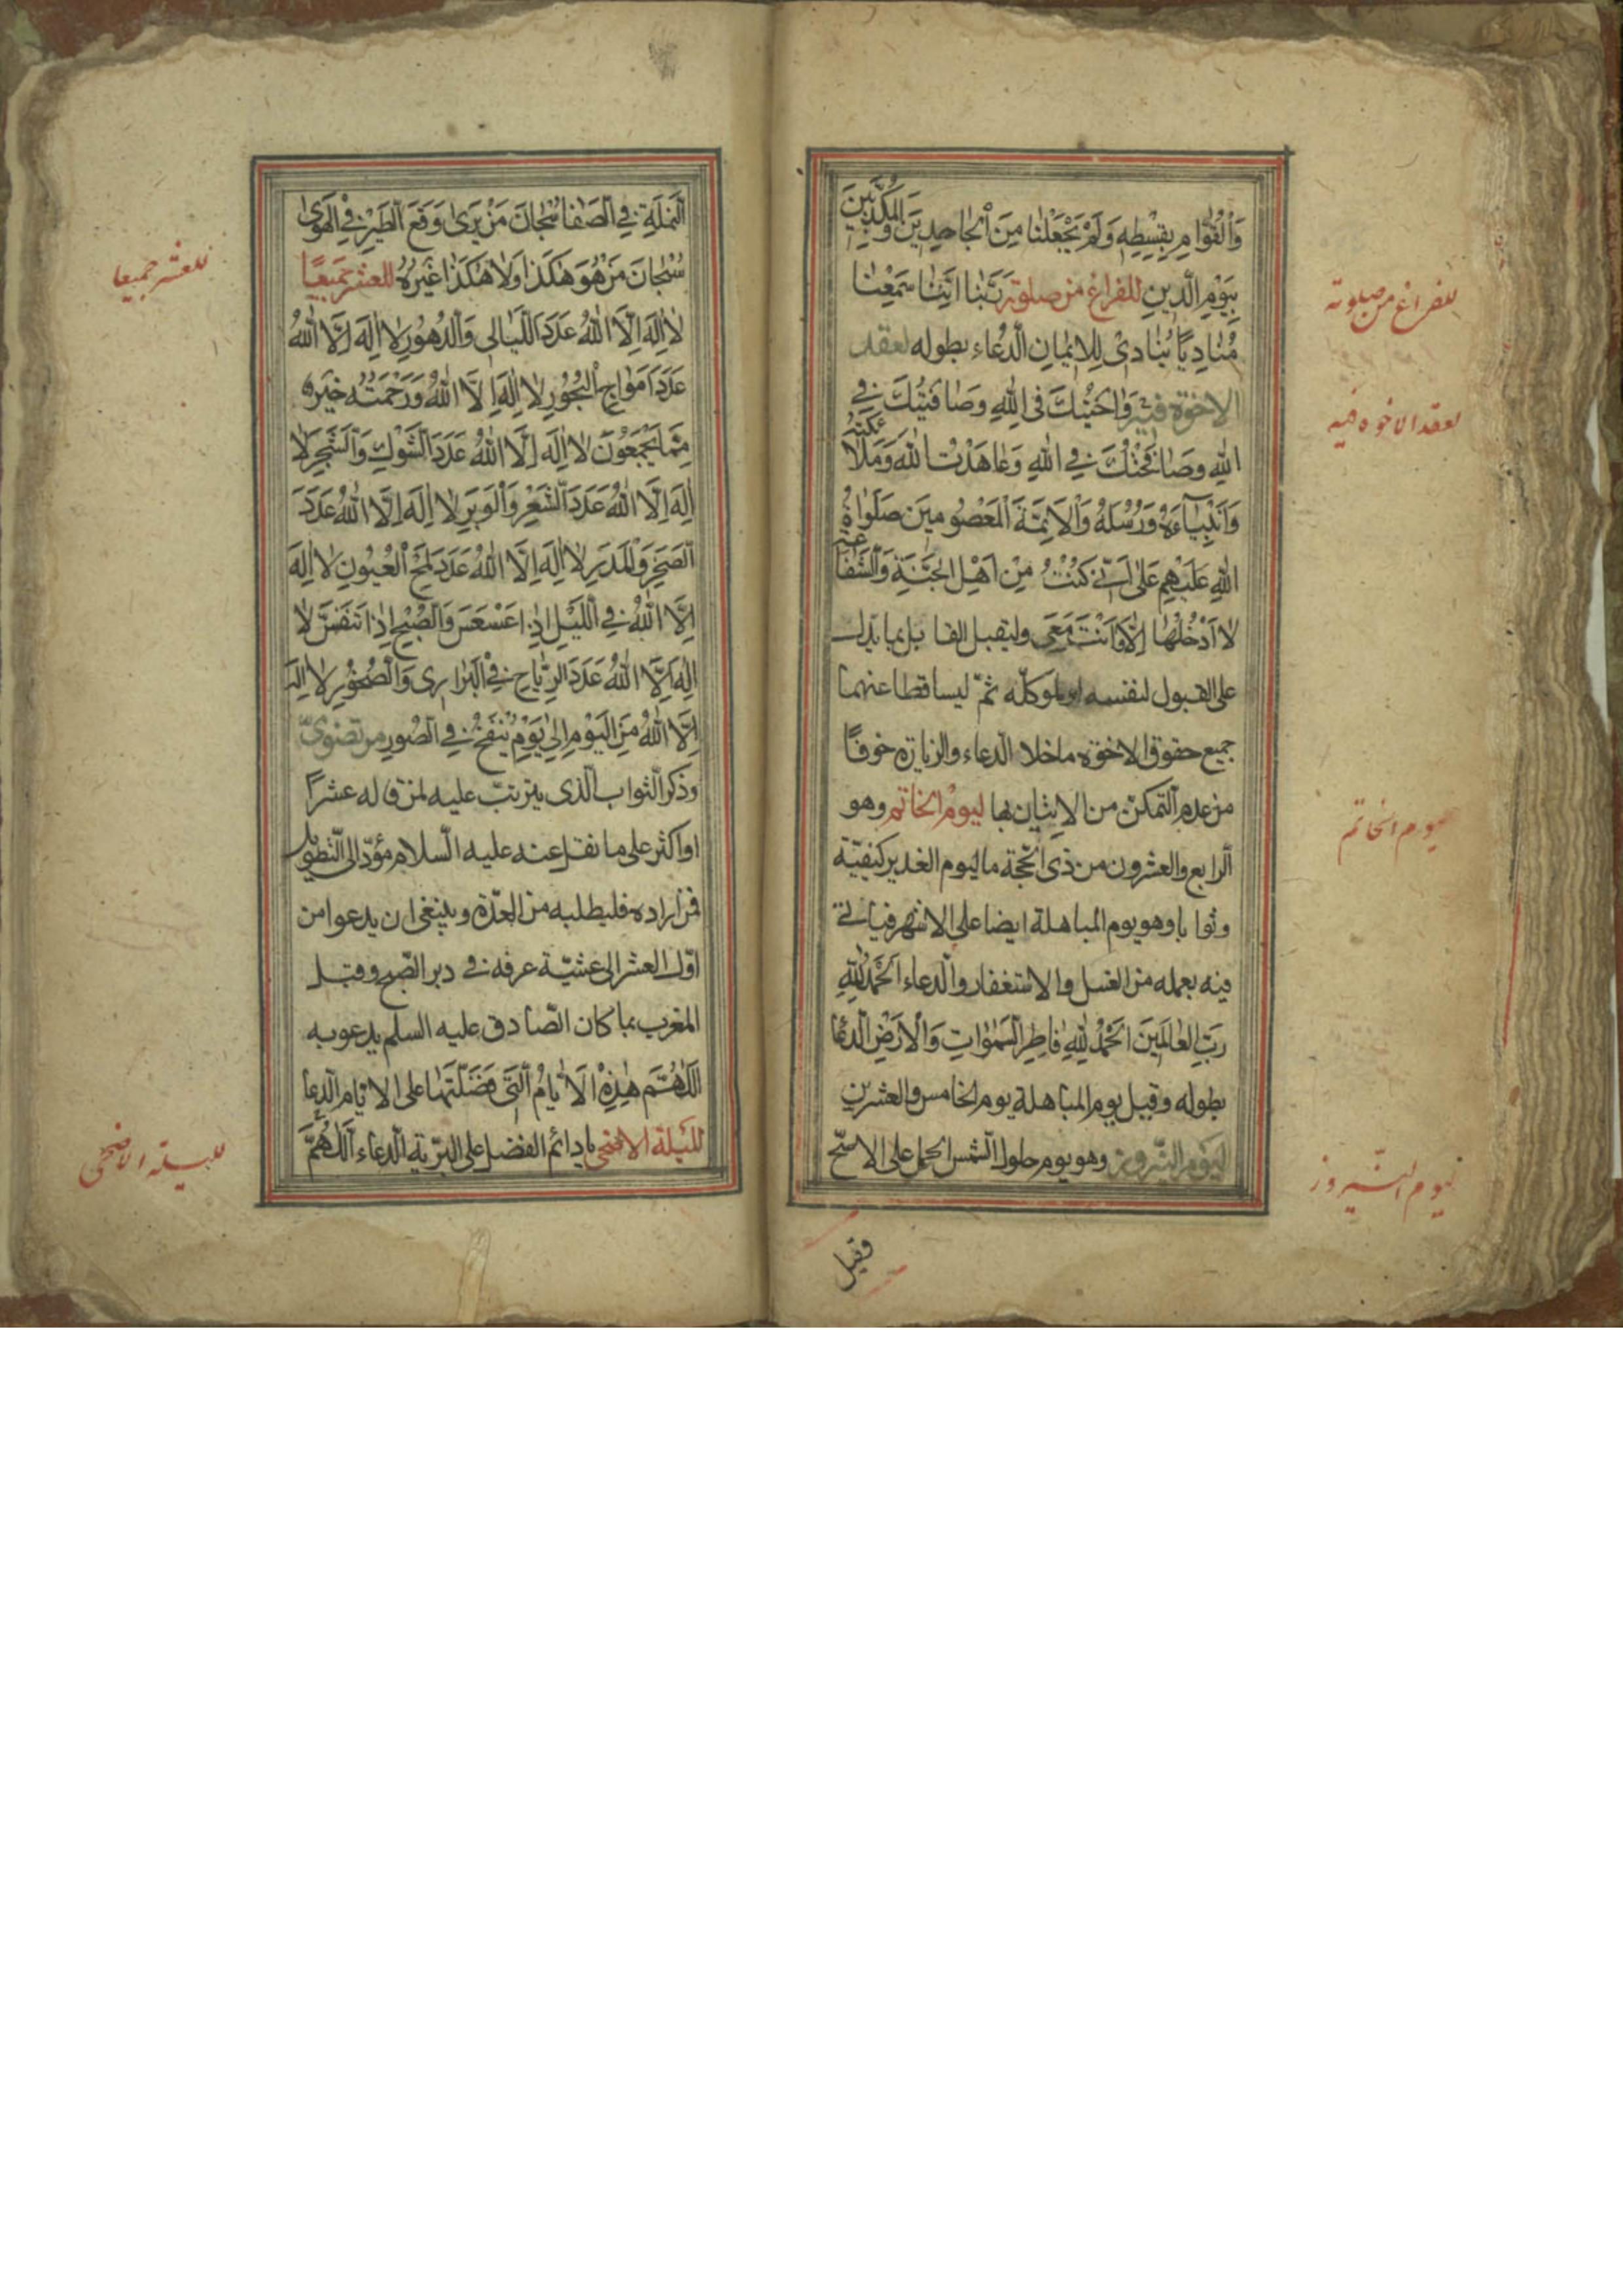 وَالْقُوّٰامِ بِقِسْطِهِ وَلَمْ يَجْعَلْنٰا مِنَ الْجٰاحِدِيَن وَالْمُكَذِّبِينَ
بِيَوْمِ الدِّينِ للفراغ من صلوته رَبَّنٰا اِنَّنٰا سَمِعْنٰا
مُنٰادِيًا يُنٰادِى لِلْاِيمٰانِ الدّعاء بطوله لعقد
الاخوة فيه وَاخَيْتُكَ فِى اللّٰهِ وَصٰافَيْتُكَ فِى
اللّٰهِ وَصٰافَحْتُكَ فِى اللّٰهِ وَعٰاهَدْتُ اللّٰهَ وَمَلٰائِكَتَهُ
وَاَنْبِيٰآءَهُ وَرُسُلَهُ وَالْاَئِمَّةَ الْمَعْصُومِينَ صَلَوٰاةُ
اللّٰهِ عَلَيْهِم عَلٰى اَنّى كُنْتُ مِنْ اَهْلِ الجَنَّةِ وَالشَّفٰاعَةِ
لٰا اَدْخُلُهٰا اِلّٰا وَاَنْتَ مَعِى وليقبل القابل بما يدل
على القبول لنفسه او لموكله ثمّ ليسا قطا عنهما
جميع حقوق الاخوة ما خلا الدعاء والزيارة خوفًا
من عدم التمكّن من الاتيان بها ليوم الخاتم وهو
الرابع والعشرون من ذى الحجة ما ليوم الغدير كيفيّة
وثوابا وهو يوم المباهلة ايضا على الاشهر فياتى
فيه بعمله من الغسل والاستغفار والدعاء اَلْحَمْدُ لِلّٰهِ
رَبِّ الْعٰالَمِينَ اَلْحَمْدُ لِلّٰهِ فٰاطِرِ السَّمٰوٰاتِ وَالْاَرْضِ الدعا
بطوله وقيل يوم المباهلة يوم الخامس والعشرين
ليوم النيروز وهو يوم حلول الشمس الحمل على الاصحّ
وقيل
للفراغ من صلوته
لعقد الاخوه فيه
ليوم الخاتم
ليوم النيروز
النَّمْلَةِ فِى الصَّفٰا سُبْحٰانَ مَنْ يَرىٰ وَقَعَ الطَّيْرِ فِى الْهَوىٰ
سُبْحٰانَ مَنْ هُوَ هٰكَذٰا وَلٰا هٰكَذٰا غَيْرُهُ للعشر جميعًا
لٰا اِلٰهَ اِلَّا اللّٰهُ عَدَدَ اللَّيٰالِى وَالدُّهُورِ لٰا اِلٰهَ اِلَّا اللّٰهُ
عَدَدَ اَمْوٰاجِ الْبُحُورِ لٰا اِلٰهَ اِلَّا اللّٰهُ وَرَحْمَتُهُ خَيْرٌ
مِمّٰا يَجْمَعُونَ لٰا اِلٰهَ اِلَّا اللّٰهُ عَدَدَ الشَّوْكِ وَالشَّجَرِ لٰا
اِلٰهَ اِلَّا اللّٰهُ عَدَدَ الشَّعْرِ وَالْوَبَرِ لٰا اِلٰهَ اِلَّا اللّٰهُ عَدَدَ
الصَّخْرِ وَالْمَدَرِ لٰا اِلٰهَ اِلَّا اللّٰهُ عَدَدَ لَمْحِ الْعُيُونِ لٰا اِلٰهَ
اِلَّا اللّٰهُ فِى اللَّيْلِ اِذٰا عَسْعَسَ وَالصُّبْحِ اِذٰا تَنَفَّسَ لٰا
اِلٰهَ اِلَّا اللّٰهُ عَدَدَ الرِّيٰاحِ فِى الْبَرٰارِى وَالصُّخُورِ لٰا اِلٰهَ
اِلَّا اللّٰهُ مِنَ الْيَوْمِ اِلىٰ يَوْمِ يُنْفَخُ فِى الصُّورِ مرتضوىّ
وذكر الثواب الّذى يترتّب عليه لمن قاله عشرًا
او اكثر على ما نقل عنه عليه السلام مؤدّ الى التطويل
فمن اراده فليطلبه من العدّة وينبغى ان يدعو من
اوّل العشر الى عشيّة عرفه فى دبر الصّبح وقبل
المغرب بما كان الصّادق عليه السلم يدعو به
اَللّٰهُمَّ هٰذِهِ الْاَيّٰامُ الَّتِى فَضَّلْتَهٰا على الايّام الدعا
لليلة الاضحى يا دائم الفضل على البريّة الدعاء اَللّٰهُمَّ
للعشر جميعا
لليلة الاضحى